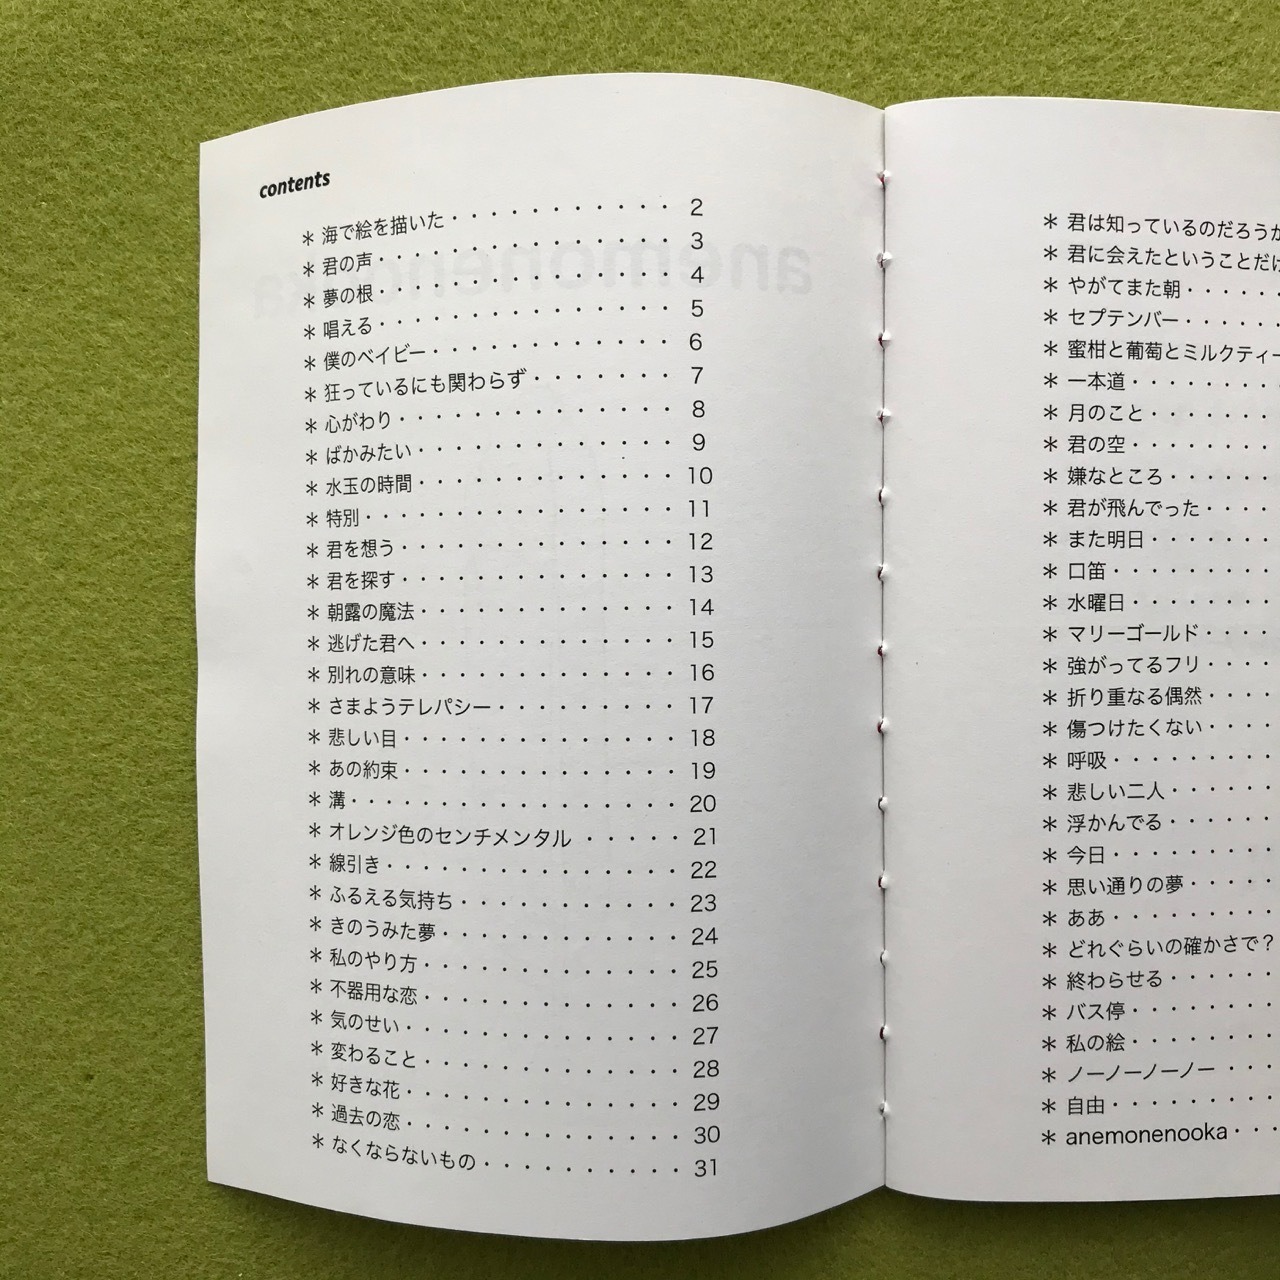 contents
＊海で絵を描いた・・・・・・・・・・・2
＊君の声・・・・・・・・・・・・・・3
＊夢の根・・・・・・・・・・・・・・4
＊唱える・・・・・・・・・・・・・・5
＊僕のベイビー・・・・・・・・・・・6
＊狂っているにも関わらず・・・・・・・7
＊心がわり・・・・・・・・・・・・・8
＊ばかみたい・・・・・・・・・・・・9
＊水玉の時間・・・・・・・・・・・・10
＊特別・・・・・・・・・・・・・・・11
＊君を想う・・・・・・・・・・・・・12
＊君を探す・・・・・・・・・・・・・13
＊朝露の魔法・・・・・・・・・・・・14
＊逃げた君へ・・・・・・・・・・・・15
＊別れの意味・・・・・・・・・・・・16
＊さまようテレパシー・・・・・・・・・17
＊悲しい目・・・・・・・・・・・・・18
＊あの約束・・・・・・・・・・・・・19
＊溝・・・・・・・・・・・・・・・・20
＊オレンジ色のセンチメンタル・・・・・21
＊線引き・・・・・・・・・・・・・・22
＊ふるえる気持ち・・・・・・・・・・23
＊きのうみた夢・・・・・・・・・・・24
＊私のやり方・・・・・・・・・・・・25
＊不器用な恋・・・・・・・・・・・・26
＊気のせい・・・・・・・・・・・・・27
＊変わること・・・・・・・・・・・・28
＊好きな花・・・・・・・・・・・・・29
＊過去の恋・・・・・・・・・・・・・30
＊なくならないもの・・・・・・・・・・31
＊君は知っているのだろうか
＊君に会えたということだけ
＊やがてまた朝・・・・・・
＊セプテンバー・・・・・・
＊蜜柑と葡萄とミルクティー
＊一本道・・・・・・・・
＊月のこと・・・・・・・
＊君の空・・・・・・・・
＊嫌なところ・・・・・・
＊君が飛んでった・・・・
＊また明日・・・・・・・
＊口笛・・・・・・・・・
＊水曜日・・・・・・・・
＊マリーゴールド・・・・
＊強がってるフリ・・・・
＊折り重なる偶然・・・・
＊傷つけたくない・・・・
＊呼吸・・・・・・・・・
＊悲しい二人・・・・・・
＊浮かんでる・・・・・・
＊今日・・・・・・・・・
＊思い通りの夢・・・・・
＊ああ・・・・・・・・・
＊どれぐらいの確かさで？
＊終わらせる・・・・・・
＊バス停・・・・・・・・
＊私の絵・・・・・・・・
＊ノーノーノーノー・・・
＊自由・・・・・・・・・
＊anemonenooka・・・